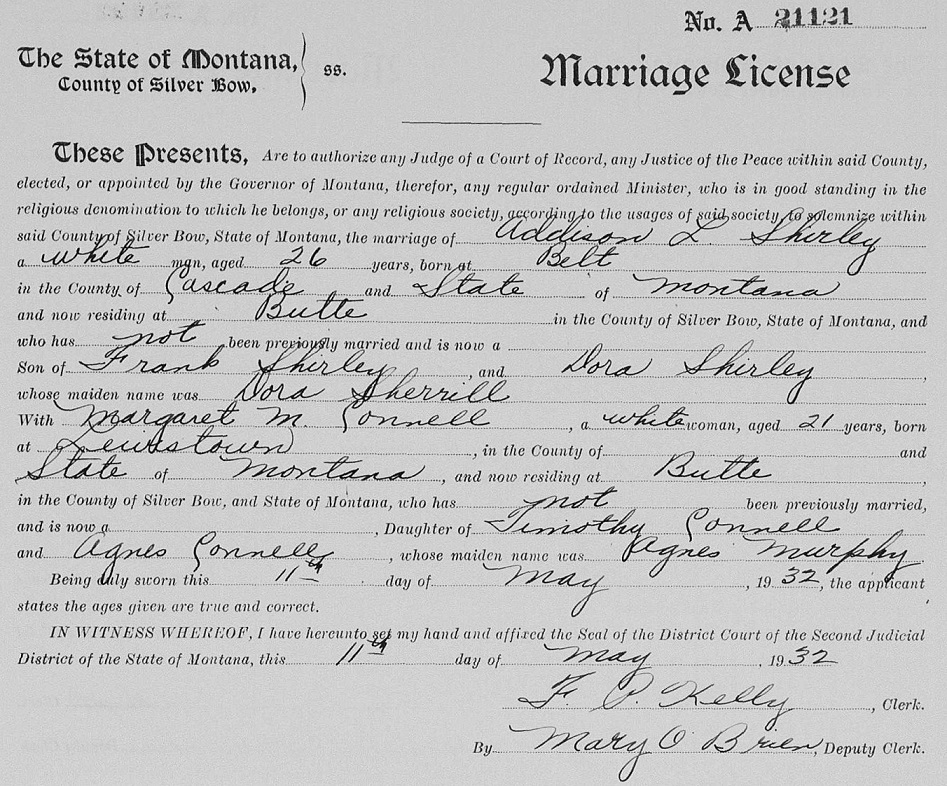 No. A 21121
The State of Montana, ss.
County of Silver Bow.
Marriage License
These Presents, Are to authorize any Judge of a Court of Record, any Justice of the Peace within said County,
elected, or appointed by the Governor of Montana, therefor, any regular ordained Minister, who is in good standing in the
religious denomination to which he belongs, or any religious society, according to the usages of said society, to solemnize within
said County of Silver Bow, State of Montana, the marriage of Addison L. Shirley
a white man, aged 26 years, born at Belt
in the County of Cascade and State of Montana
and now residing at Butte in the County of Silver Bow, State of Montana, and
who has not been previously married and is now a
Son of Frank Shirley, and Dora Shirley,
whose maiden name was Dora Sherrill
With Margaret M. Connell, a white woman, aged 21 years, born
at Lewistown, in the County of and
State of Montana, and now residing at Butte,
in the County of Silver Bow, and State of Montana, who has not been previously married,
and is now a, Daughter of Timothy Connell
and Agnes Connell, whose maiden name was Agnes Murphy.
Being duly sworn this 11th day of May, 1932, the applicant
states the ages given are true and correct.
IN WITNESS WHEREOF, I have hereunto set my hand and affixed the Seal of the District Court of the Second Judicial
District of the State of Montana, this 11th day of May, 1932
F. P. Kelly, Clerk.
By Mary O Brien, Deputy Clerk.